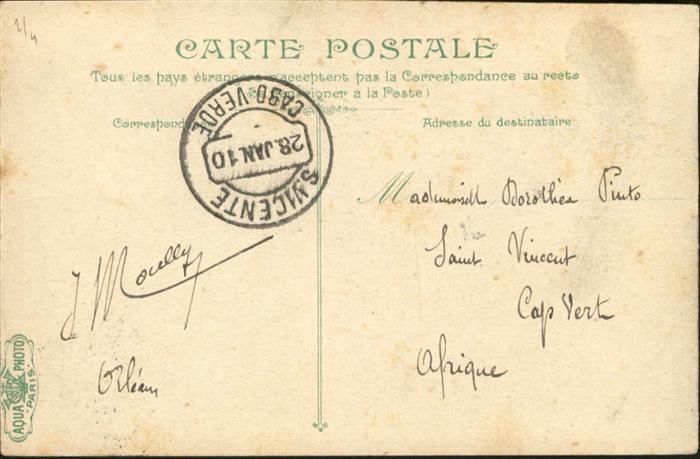 2/4
CARTE POSTALE
Tous les pays étrangers n'acceptent pas la Correspondance au recto
(Se renseigner à la Poste)
Correspondance
Adresse du destinataire
S. VICENTE
28. JAN. 10
CABO VERDE
Mademoiselle Dorothéa Pinto
Saint Vincent
Cap Vert
Afrique
J Moully
Orléans
AQUA PHOTO
PARIS